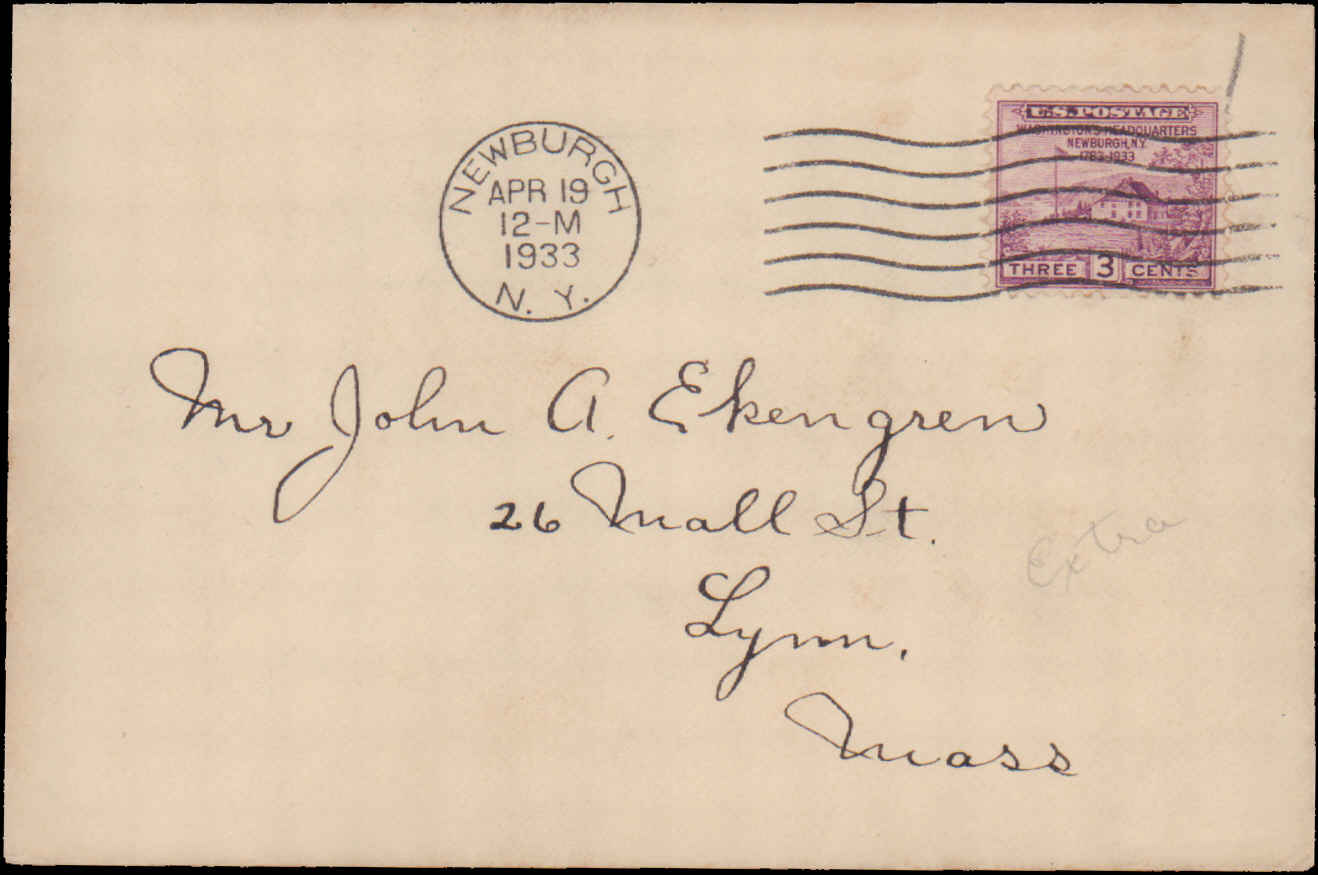 NEWBURGH
APR 19
12-M
1933
N. Y.
U.S. POSTAGE
WASHINGTON'S HEADQUARTERS
NEWBURGH, N.Y.
1783-1933
THREE 3 CENTS
Mr John A. Ekengren
26 Mall St.
Extra
Lynn,
Mass